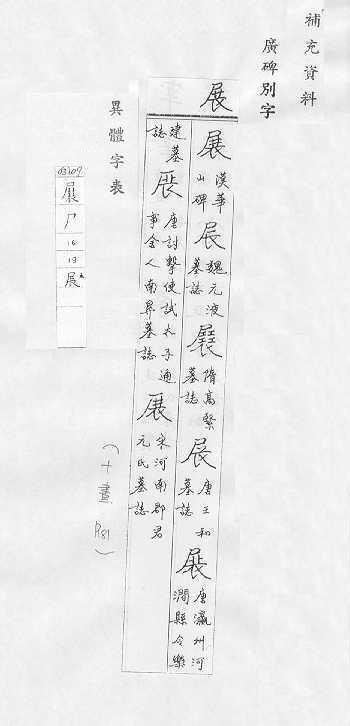 補充資料
廣碑別字
展
展 漢華山碑 展 魏元液墓誌 展 隋高緊墓誌 展 唐王和墓誌 展 唐瀛州河澗縣令樂
建墓誌 展 唐討擊使試太子通事舍人南昇墓誌 展 宋河南郡君元氏墓誌
(十畫 P.81)
異體字表
03109
尸
10
13
展